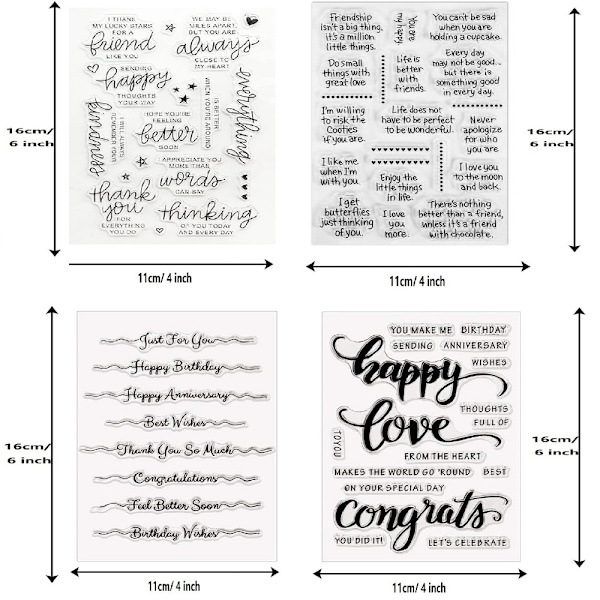 I THANK
MY LUCKY STARS
FOR A
friend
LIKE YOU
WE MAY BE
MILES APART,
BUT YOU ARE
always
CLOSE TO
MY HEART
SENDING
happy
THOUGHTS
YOUR WAY
everything
IS BETTER
WHEN YOU'RE AROUND
kindness
I WILL ALWAYS
REMEMBER YOUR
HOPE YOU'RE
FEELING
better
SOON
APPRECIATE YOU
MORE THAN
words
CAN SAY
thank
you
FOR
EVERYTHING
YOU DO
thinking
OF YOU TODAY
AND EVERY DAY
16cm/
6 inch
11cm/ 4 inch
Friendship
isn't a big thing,
it's a million
little things.
You are
my happy
You can't be sad
when you are
holding a cupcake.
Do small
things with
great love
Life is
better
with
friends.
Every day
may not be good...
but there is
something good
in every day.
I'm willing
to risk the
Cooties
if you are.
Life does not
have to be perfect
to be wonderful.
Never
apologize
for who
you are
I like me
when I'm
with you.
Enjoy the
little things
in life.
I love you
to the moon
and back.
I get
butterflies
just thinking
of you.
I love
you
more.
There's nothing
better than a friend,
unless it's a friend
with chocolate.
16cm/
6 inch
11cm/ 4 inch
Just For You
Happy Birthday
Happy Anniversary
Best Wishes
Thank You So Much
Congratulations
Feel Better Soon
Birthday Wishes
16cm/
6 inch
11cm/ 4 inch
YOU MAKE ME
BIRTHDAY
SENDING
ANNIVERSARY
happy
WISHES
THOUGHTS
FULL OF
love
TO YOU
FROM THE HEART
MAKES THE WORLD GO 'ROUND
BEST
ON YOUR SPECIAL DAY
congrats
YOU DID IT!
LET'S CELEBRATE
16cm/
6 inch
11cm/ 4 inch